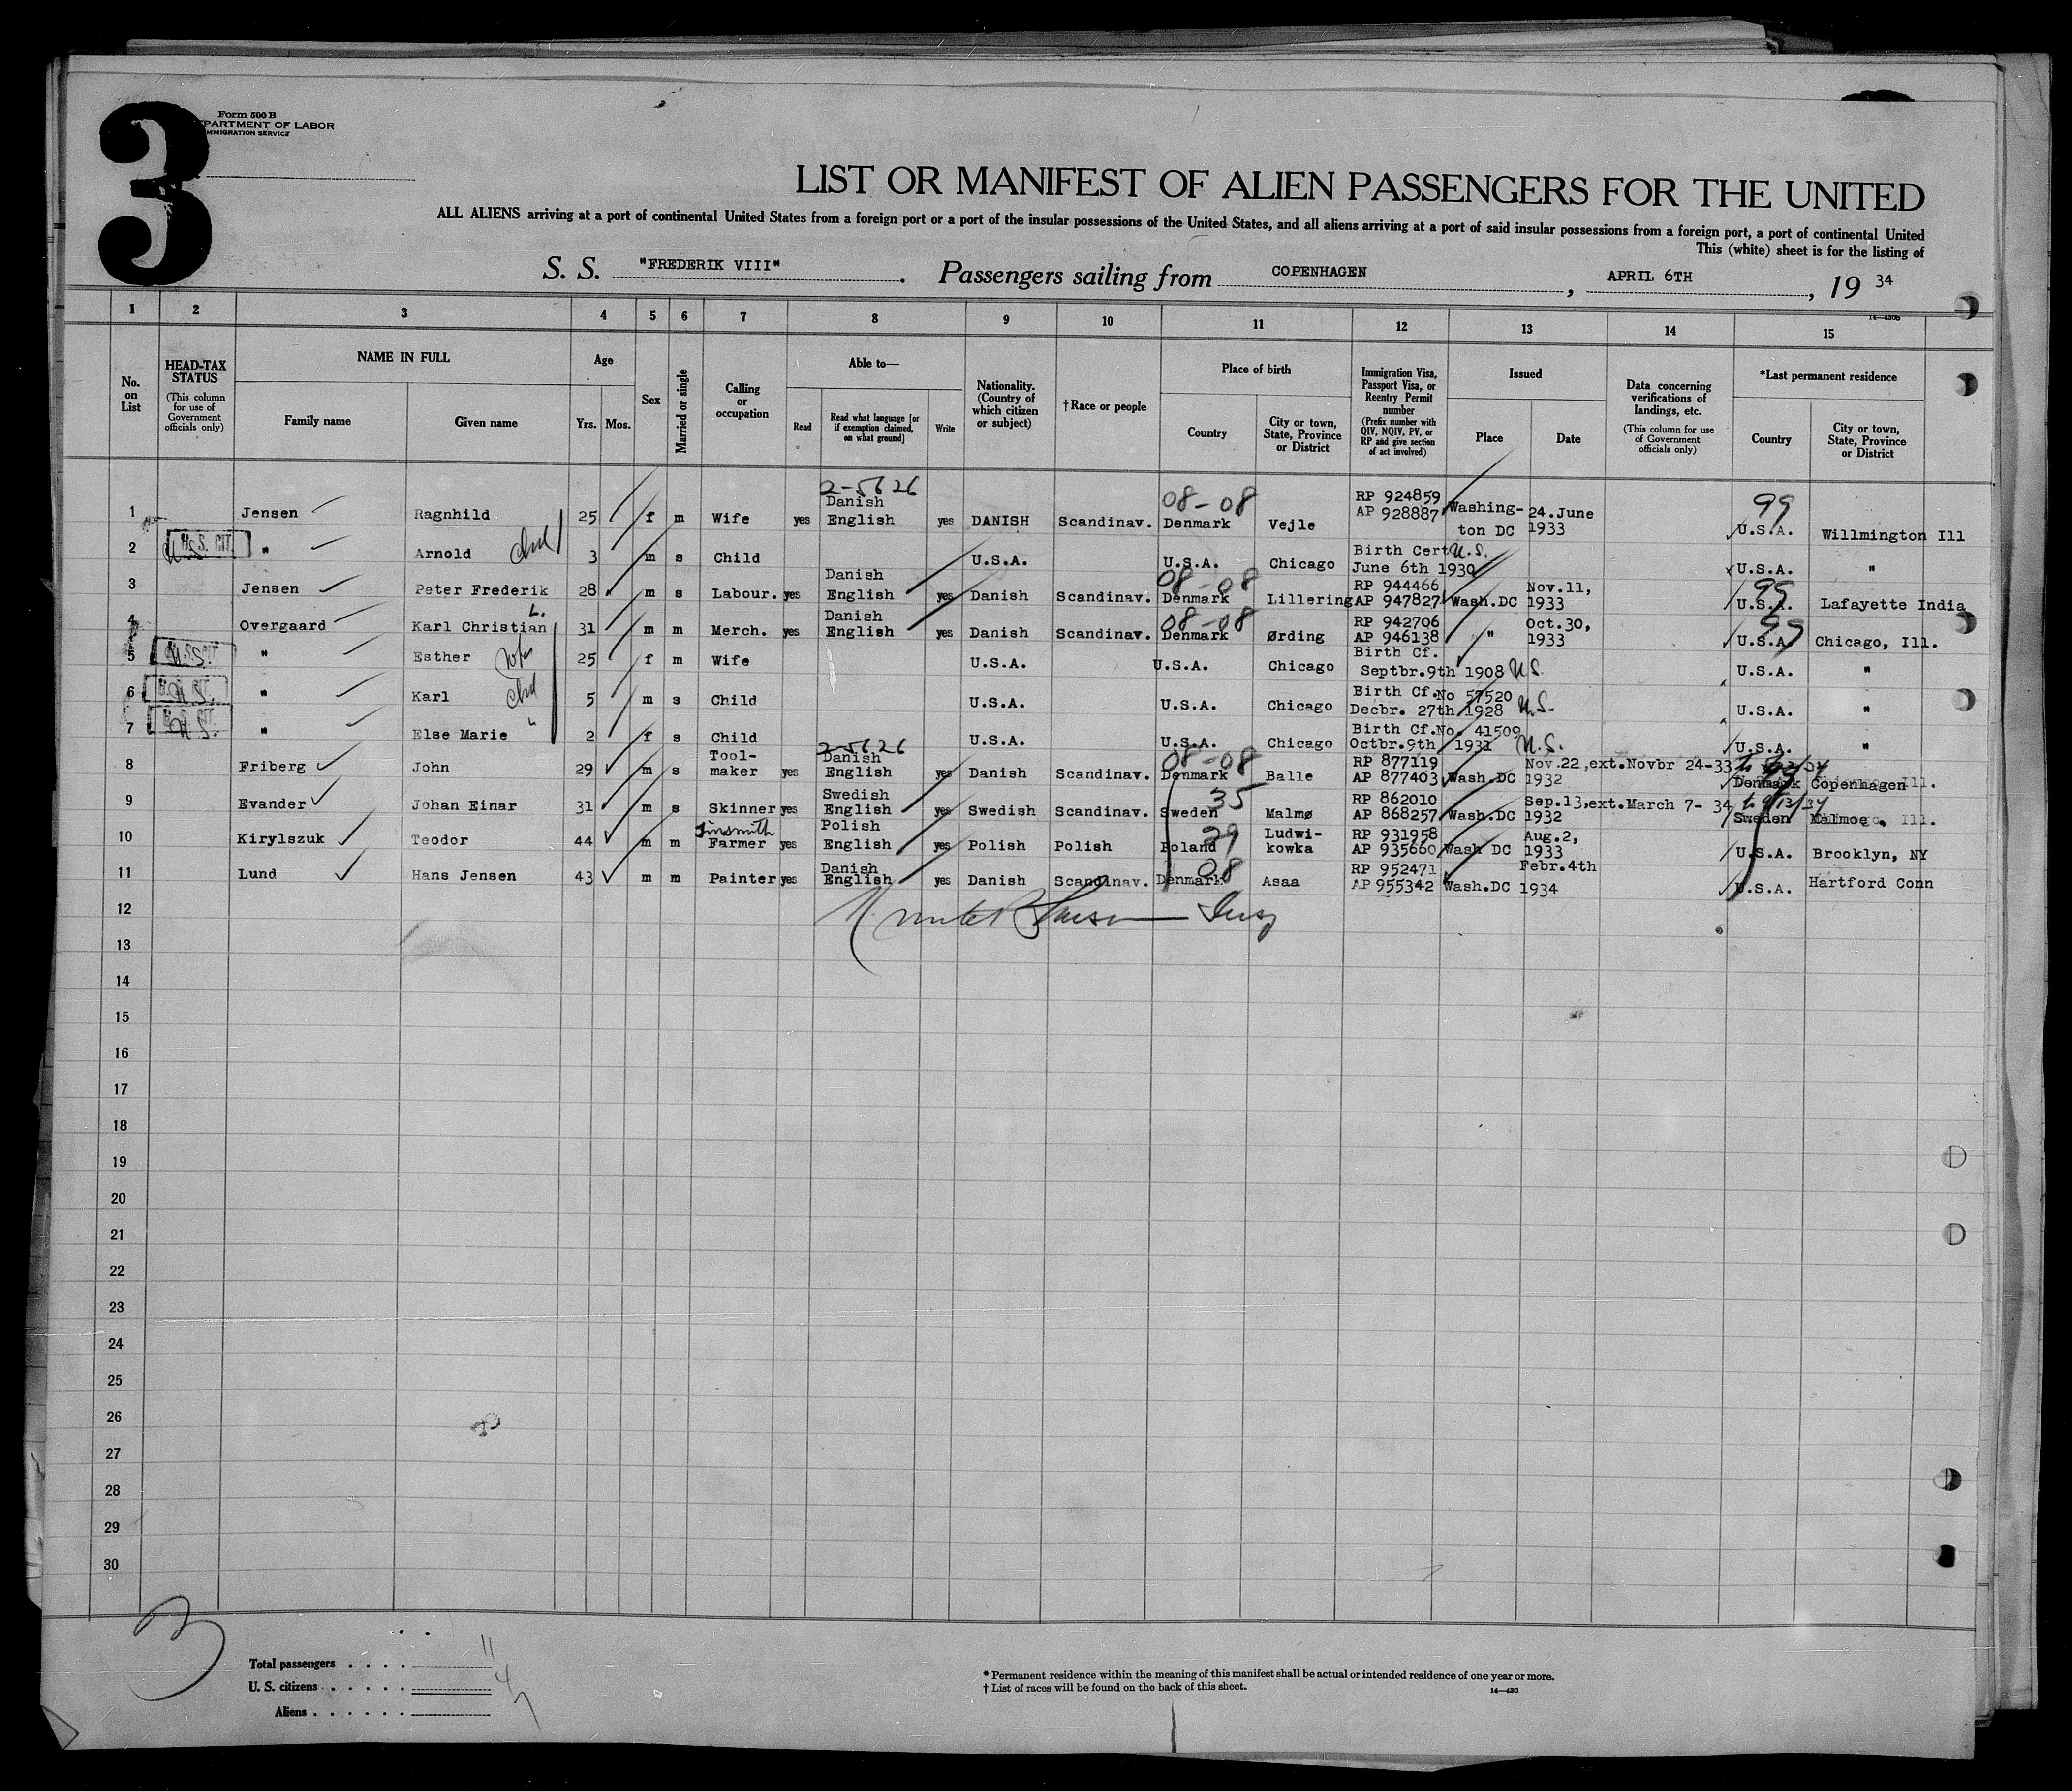 3
Form 500 B
DEPARTMENT OF LABOR
IMMIGRATION SERVICE
LIST OR MANIFEST OF ALIEN PASSENGERS FOR THE UNITED
ALL ALIENS arriving at a port of continental United States from a foreign port or a port of the insular possessions of the United States, and all aliens arriving at a port of said insular possessions from a foreign port, a port of continental United
This (white) sheet is for the listing of
S. S. "FREDERIK VIII". Passengers sailing from COPENHAGEN, APRIL 6TH, 19 34
14-430b
1 2 3 4 5 6 7 8 9 10 11 12 13 14 15
No. on List
HEAD-TAX STATUS (This column for use of Government officials only)
NAME IN FULL
Family name
Given name
Age
Yrs. Mos.
Sex
Married or single
Calling or occupation
Able to—
Read
Read what language [or if exemption claimed, on what ground]
Write
Nationality. (Country of which citizen or subject)
†Race or people
Place of birth
Country
City or town, State, Province or District
Immigration Visa, Passport Visa, or Reentry Permit number (Prefix number with QIV, NQIV, PV, or RP and give section of act involved)
Issued
Place
Date
Data concerning verifications of landings, etc. (This column for use of Government officials only)
*Last permanent residence
Country
City or town, State, Province or District
1 Jensen Ragnhild 25 f m Wife yes 2-5626 Danish English yes DANISH Scandinav. 08-08 Denmark Vejle RP 924859 AP 928887 Washington DC 24.June 1933 99 U.S.A. Willmington Ill
2 U.S. CIT. " Arnold chd 3 m s Child U.S.A. U.S.A. Chicago Birth Cert U.S. June 6th 1930 U.S.A. "
3 Jensen Peter Frederik 28 m s Labour. yes Danish English yes Danish Scandinav. 08-08 Denmark Lillering RP 944466 AP 947827 Wash.DC Nov.11, 1933 99 U.S.A. Lafayette India
4 Overgaard Karl Christian L. 31 m m Merch. yes Danish English yes Danish Scandinav. 08-08 Denmark Ørding RP 942706 AP 946138 " Oct.30, 1933 99 U.S.A. Chicago, Ill.
5 U.S. " Esther wfe 25 f m Wife U.S.A. U.S.A. Chicago Birth Cf. Septbr.9th 1908 U.S. U.S.A. "
6 U.S. " Karl chd 5 m s Child U.S.A. U.S.A. Chicago Birth Cf.No 57520 Decbr. 27th 1928 U.S. U.S.A. "
7 U.S. " Else Marie " 2 f s Child U.S.A. U.S.A. Chicago Birth Cf.No. 41509 Octbr.9th 1931 U.S. U.S.A. "
8 Friberg John 29 m s Tool-maker yes 2-5626 Danish English yes Danish Scandinav. 08-08 Denmark Balle RP 877119 AP 877403 Wash.DC Nov.22,ext.Novbr 24-33 1932 Denmark Copenhagen
9 Evander Johan Einar 31 m s Skinner yes Swedish English yes Swedish Scandinav. 35 Sweden Malmø RP 862010 AP 868257 Wash.DC Sep.13,ext.March 7- 34 1932 to 9/13/34 Sweden Malmoe
10 Kirylszuk Teodor 44 m m Tinsmith Farmer yes Polish English yes Polish Polish 29 Poland Ludwi-kowka RP 931958 AP 935660 Wash DC Aug.2, 1933 U.S.A. Brooklyn, NY
11 Lund Hans Jensen 43 m m Painter yes Danish English yes Danish Scandinav. 08 Denmark Asaa RP 952471 AP 955342 Wash.DC Febr.4th 1934 U.S.A. Hartford Conn
12
13
14
15
16
17
18
19
20
21
22
23
24
25
26
27
28
29
30
3
Total passengers . . . . 11
U. S. citizens . . . . . . 4
Aliens . . . . . . 7
* Permanent residence within the meaning of this manifest shall be actual or intended residence of one year or more.
† List of races will be found on the back of this sheet.
14-430